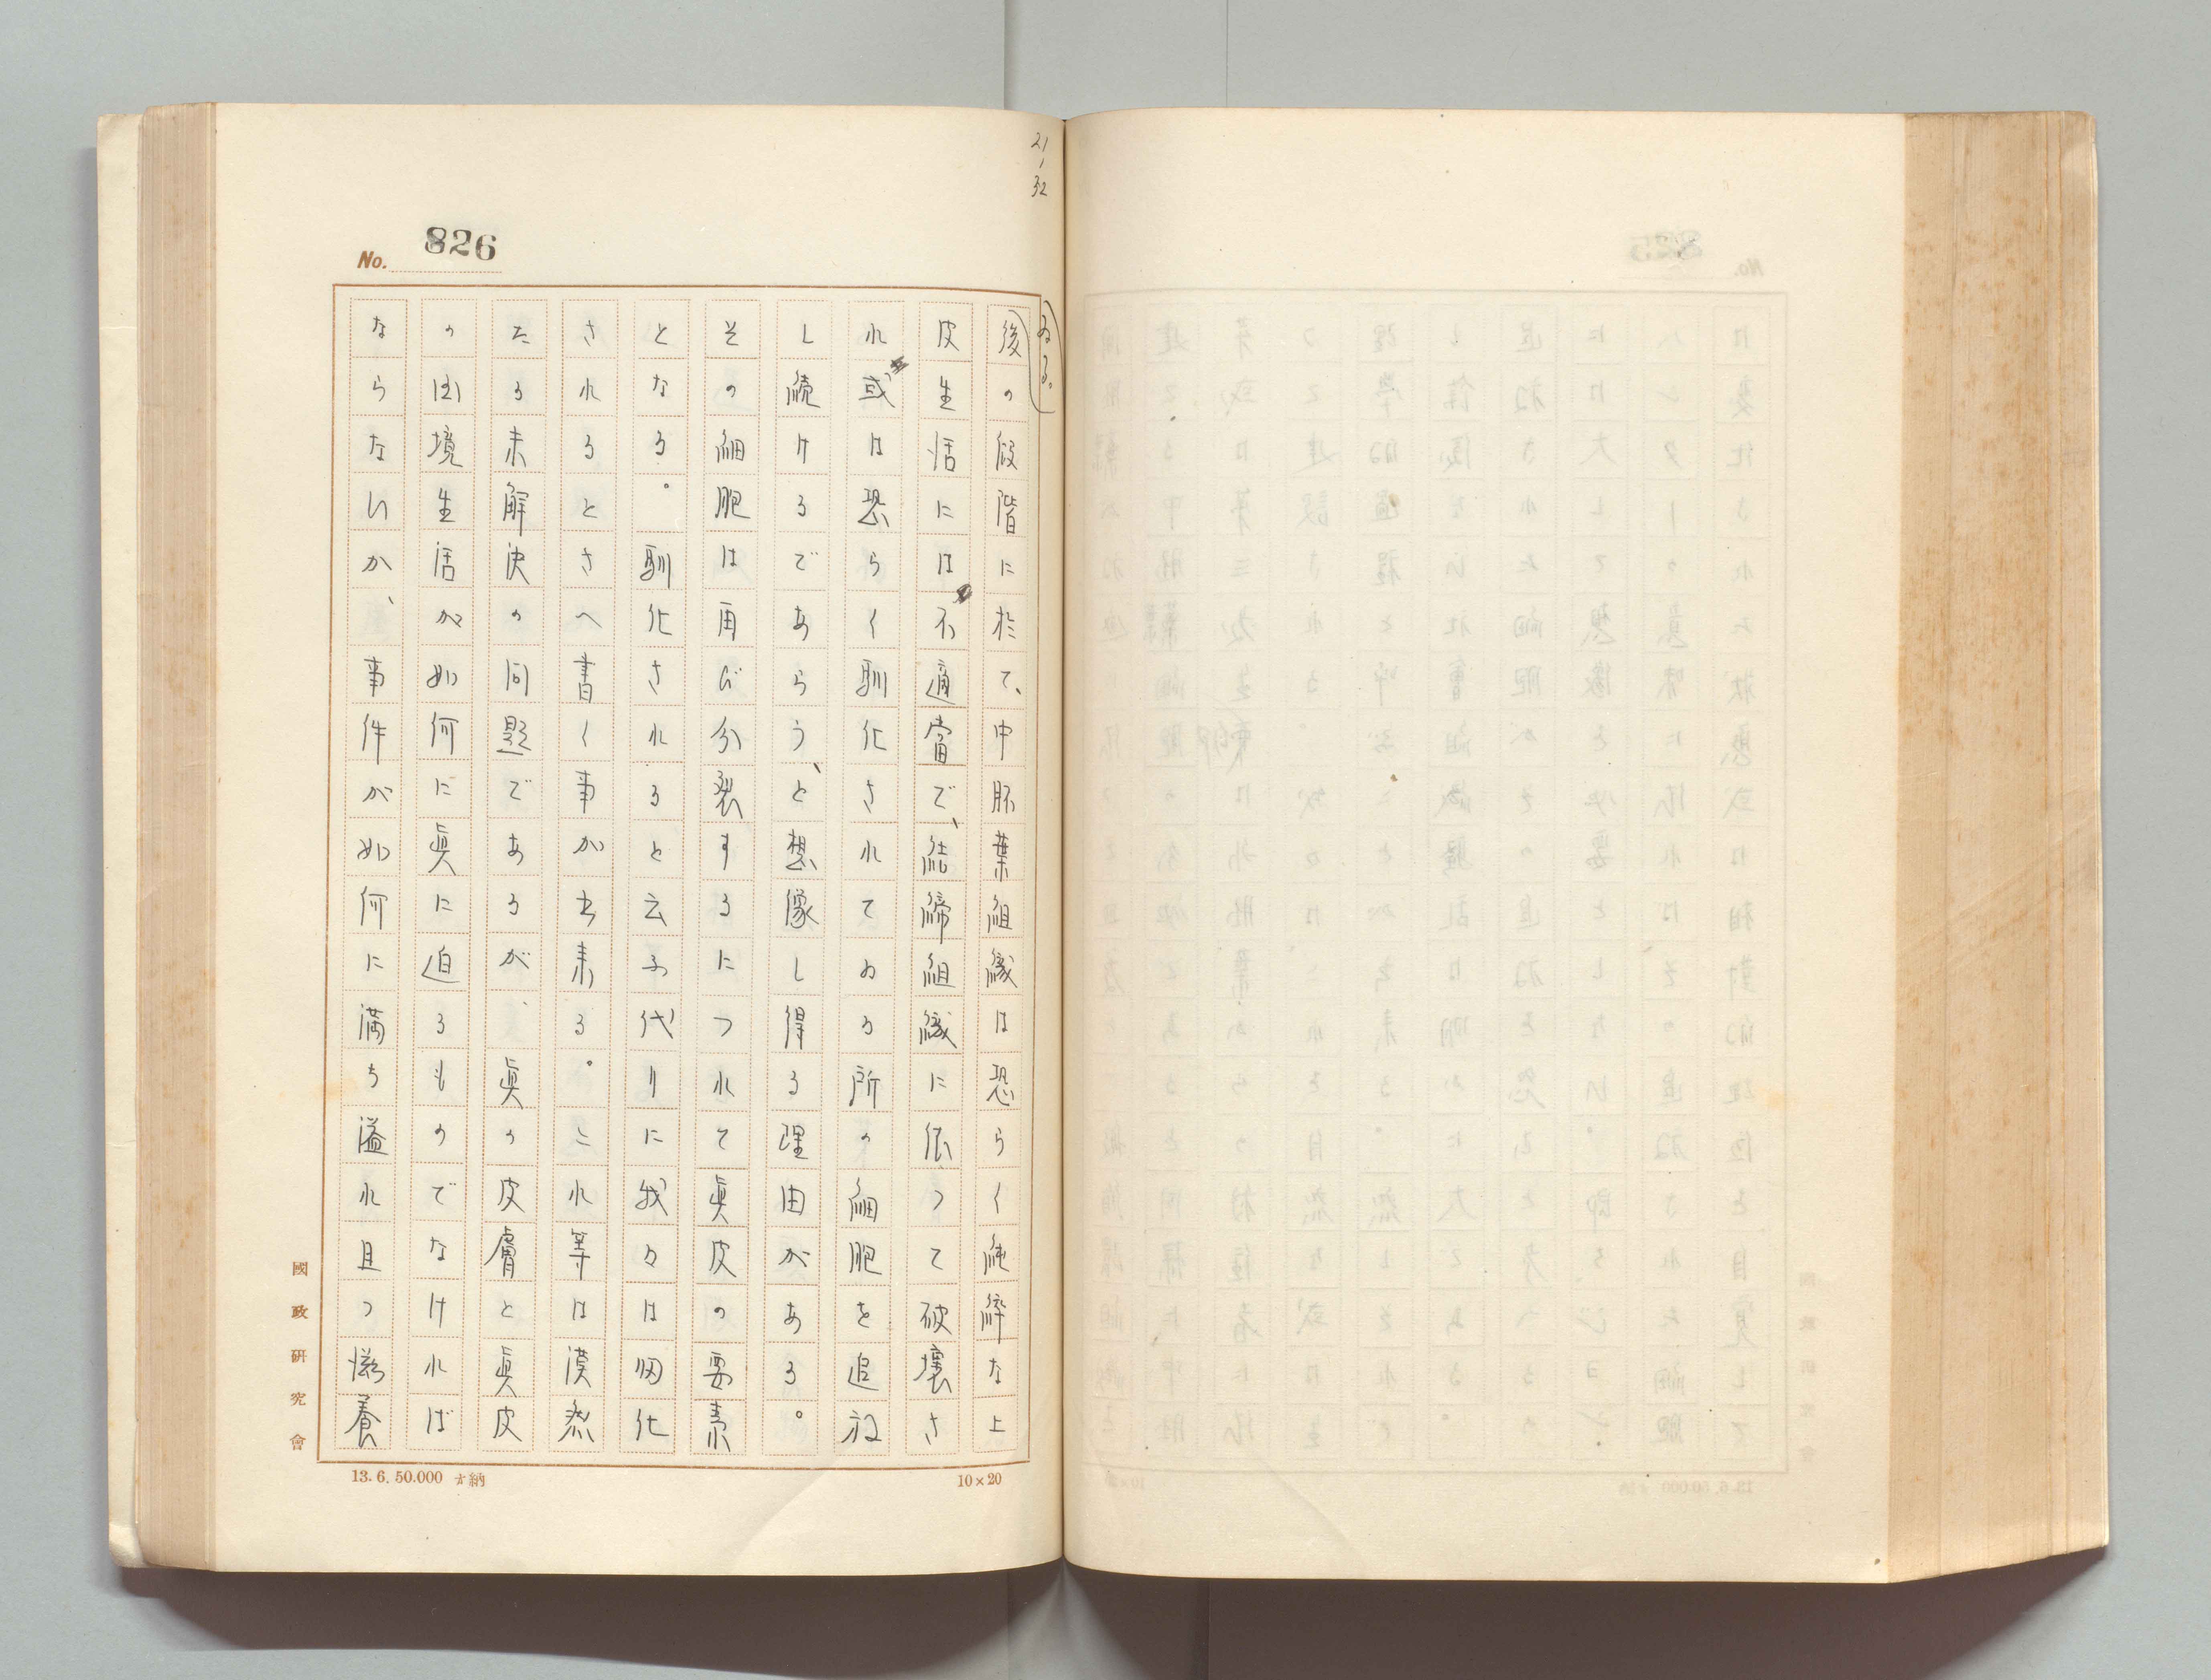 21
32
No. 826
ゐる。
後の段階に於て、中胚葉組織は恐らく純粋な上
皮生活には不適當で、結締組織に依つて破壊さ
れ或は恐らく馴化されてゐる所の細胞を追放
し続けるであらう、と想像し得る理由がある。
その細胞は再び分裂するにつれて眞皮の要素
となる。馴化されると云ふ代りに我々は化
されるとさへ書く事が出来る。これ等は漠然
たる未解決の問題であるが、眞の皮膚と眞皮
の国境生活が如何に眞に迫るものでなければ
ならないか、事件が如何に満ち溢れ且つ滋養
國政研究會
10×20
13.6.50.000 納